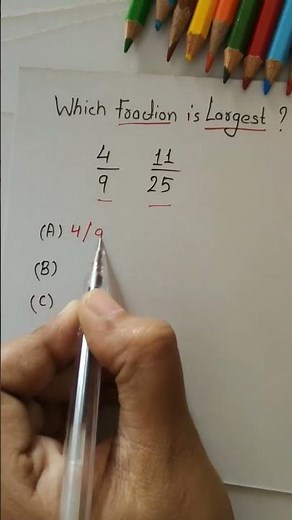 Which Fraction is Largest ?
4/9 11/25
(A) 4/9
(B)
(C)